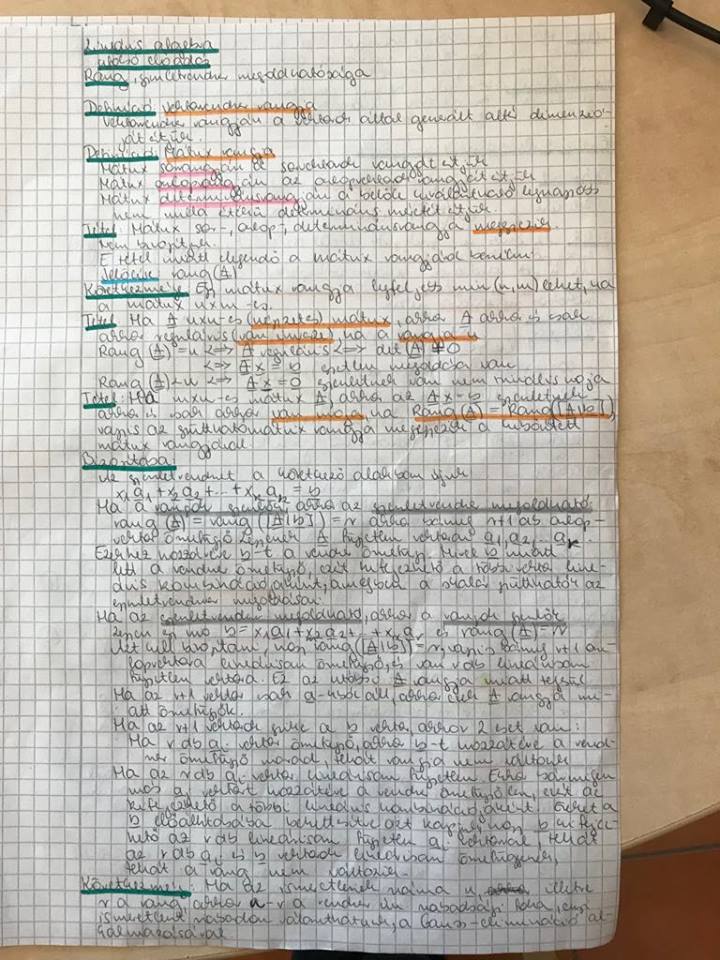 Lineáris algebra
utolsó előadás
Rang, egyenletrendszer megoldhatósága
Definíció: vektorrendszer rangja
Vektorrendszer rangján a vektorok által generált altér dimenzió-
ját értjük.
Definíció: Mátrix rangja
Mátrix sorrangján a sorvektorok rangját értjük
Mátrix oszloprangján az oszlopvektorok rangját értjük
Mátrix determinánsrangján a belőle kiválasztható legnagyobb
nem nulla értékű determináns méretét értjük
Tétel: Mátrix sor-, oszlop-, determinánsrangja megegyezik.
Nem bizonyítjuk.
E tétel miatt elegendő a mátrix rangjáról beszélni.
Jelölése: rang(A)
Következménye: Egy mátrix rangja legfeljebb min(n,m) lehet, ha
a mátrix nxm-es.
Tétel: Ha A nxn-es (négyzetes) mátrix, akkor A akkor és csak
akkor reguláris (van inverze), ha a rangja n
Rang (A)=n <=> A reguláris <=> det (A) ≠0
<=> A x = b egyetlen megoldása van
Rang (A)<n <=> A x = 0 egyenletnek van nem triviális mo-ja
Tétel: Ha mxn-es mátrix A, akkor az A x = b egyenletnek
akkor és csak akkor van mo-ja, ha Rang(A) = Rang([A|b]),
vagyis az együtthatómátrix rangja megegyezik a kibővített
mátrix rangjával.
Bizonyítás:
Az egyenletrendszert a következő alakban írjuk
x1a1+x2a2+...+xnan = b
Ha a rangok egyenlők, akkor az egyenletrendszer megoldható
rang (A) = rang ([A|b]) = r akkor bármely r+1 db oszlop-
vektor összefüggő. Legyenek A független vektorai a1,a2,...ar.
Ezekhez hozzávéve b-t a rendszer összefüggő. Mivel b miatt
lett a rendszer összefüggő, ezért kifejezhető a többi vektor line-
áris kombinációjaként, amelyben a skalár együtthatók az
egyenletrendszer megoldásai.
Ha az egyenletrendszer megoldható, akkor a rangok egyenlők
Legyen egy mo b = x1a1+x2a2+...+xnar és rang (A)=r
Azt kell bizonyítani, hogy rang([A|b])=r, vagyis bármely r+1 osz-
lopvektora lineárisan összefüggő, és van r db lineárisan
független vektora. Ez az utóbbi A rangja miatt teljesül
Ha az r+1 vektor csak a-kból áll, akkor ezek A rangja mi-
att összefüggők.
Ha az r+1 vektorok közte a b vektor, akkor 2 eset van:
Ha r db ai vektor összefüggő, akkor b-t hozzátéve a rend-
szer összefüggő marad, tehát rangja nem változik
Ha az r db ai vektor lineárisan független. Ekkor bármilyen
más ai vektort hozzátéve a rendszer összefüggő lesz, ezért az
kifejezhető a többi lineáris kombinációjaként. Ezeket a
b előállításába behelyettesítve azt kapjuk, hogy b kifejez-
hető az r db lineárisan független ai vektorral, tehát
az r db ai és b vektorok lineárisan összefüggenek,
tehát a rang nem változik.
Következmény: Ha az ismeretlenek száma n, illetve
r a rang, akkor n-r a rendszer ún. szabadsági foka, ennyi
ismeretlent szabadon választhatunk, a Gauss-elimináció al-
kalmazásával